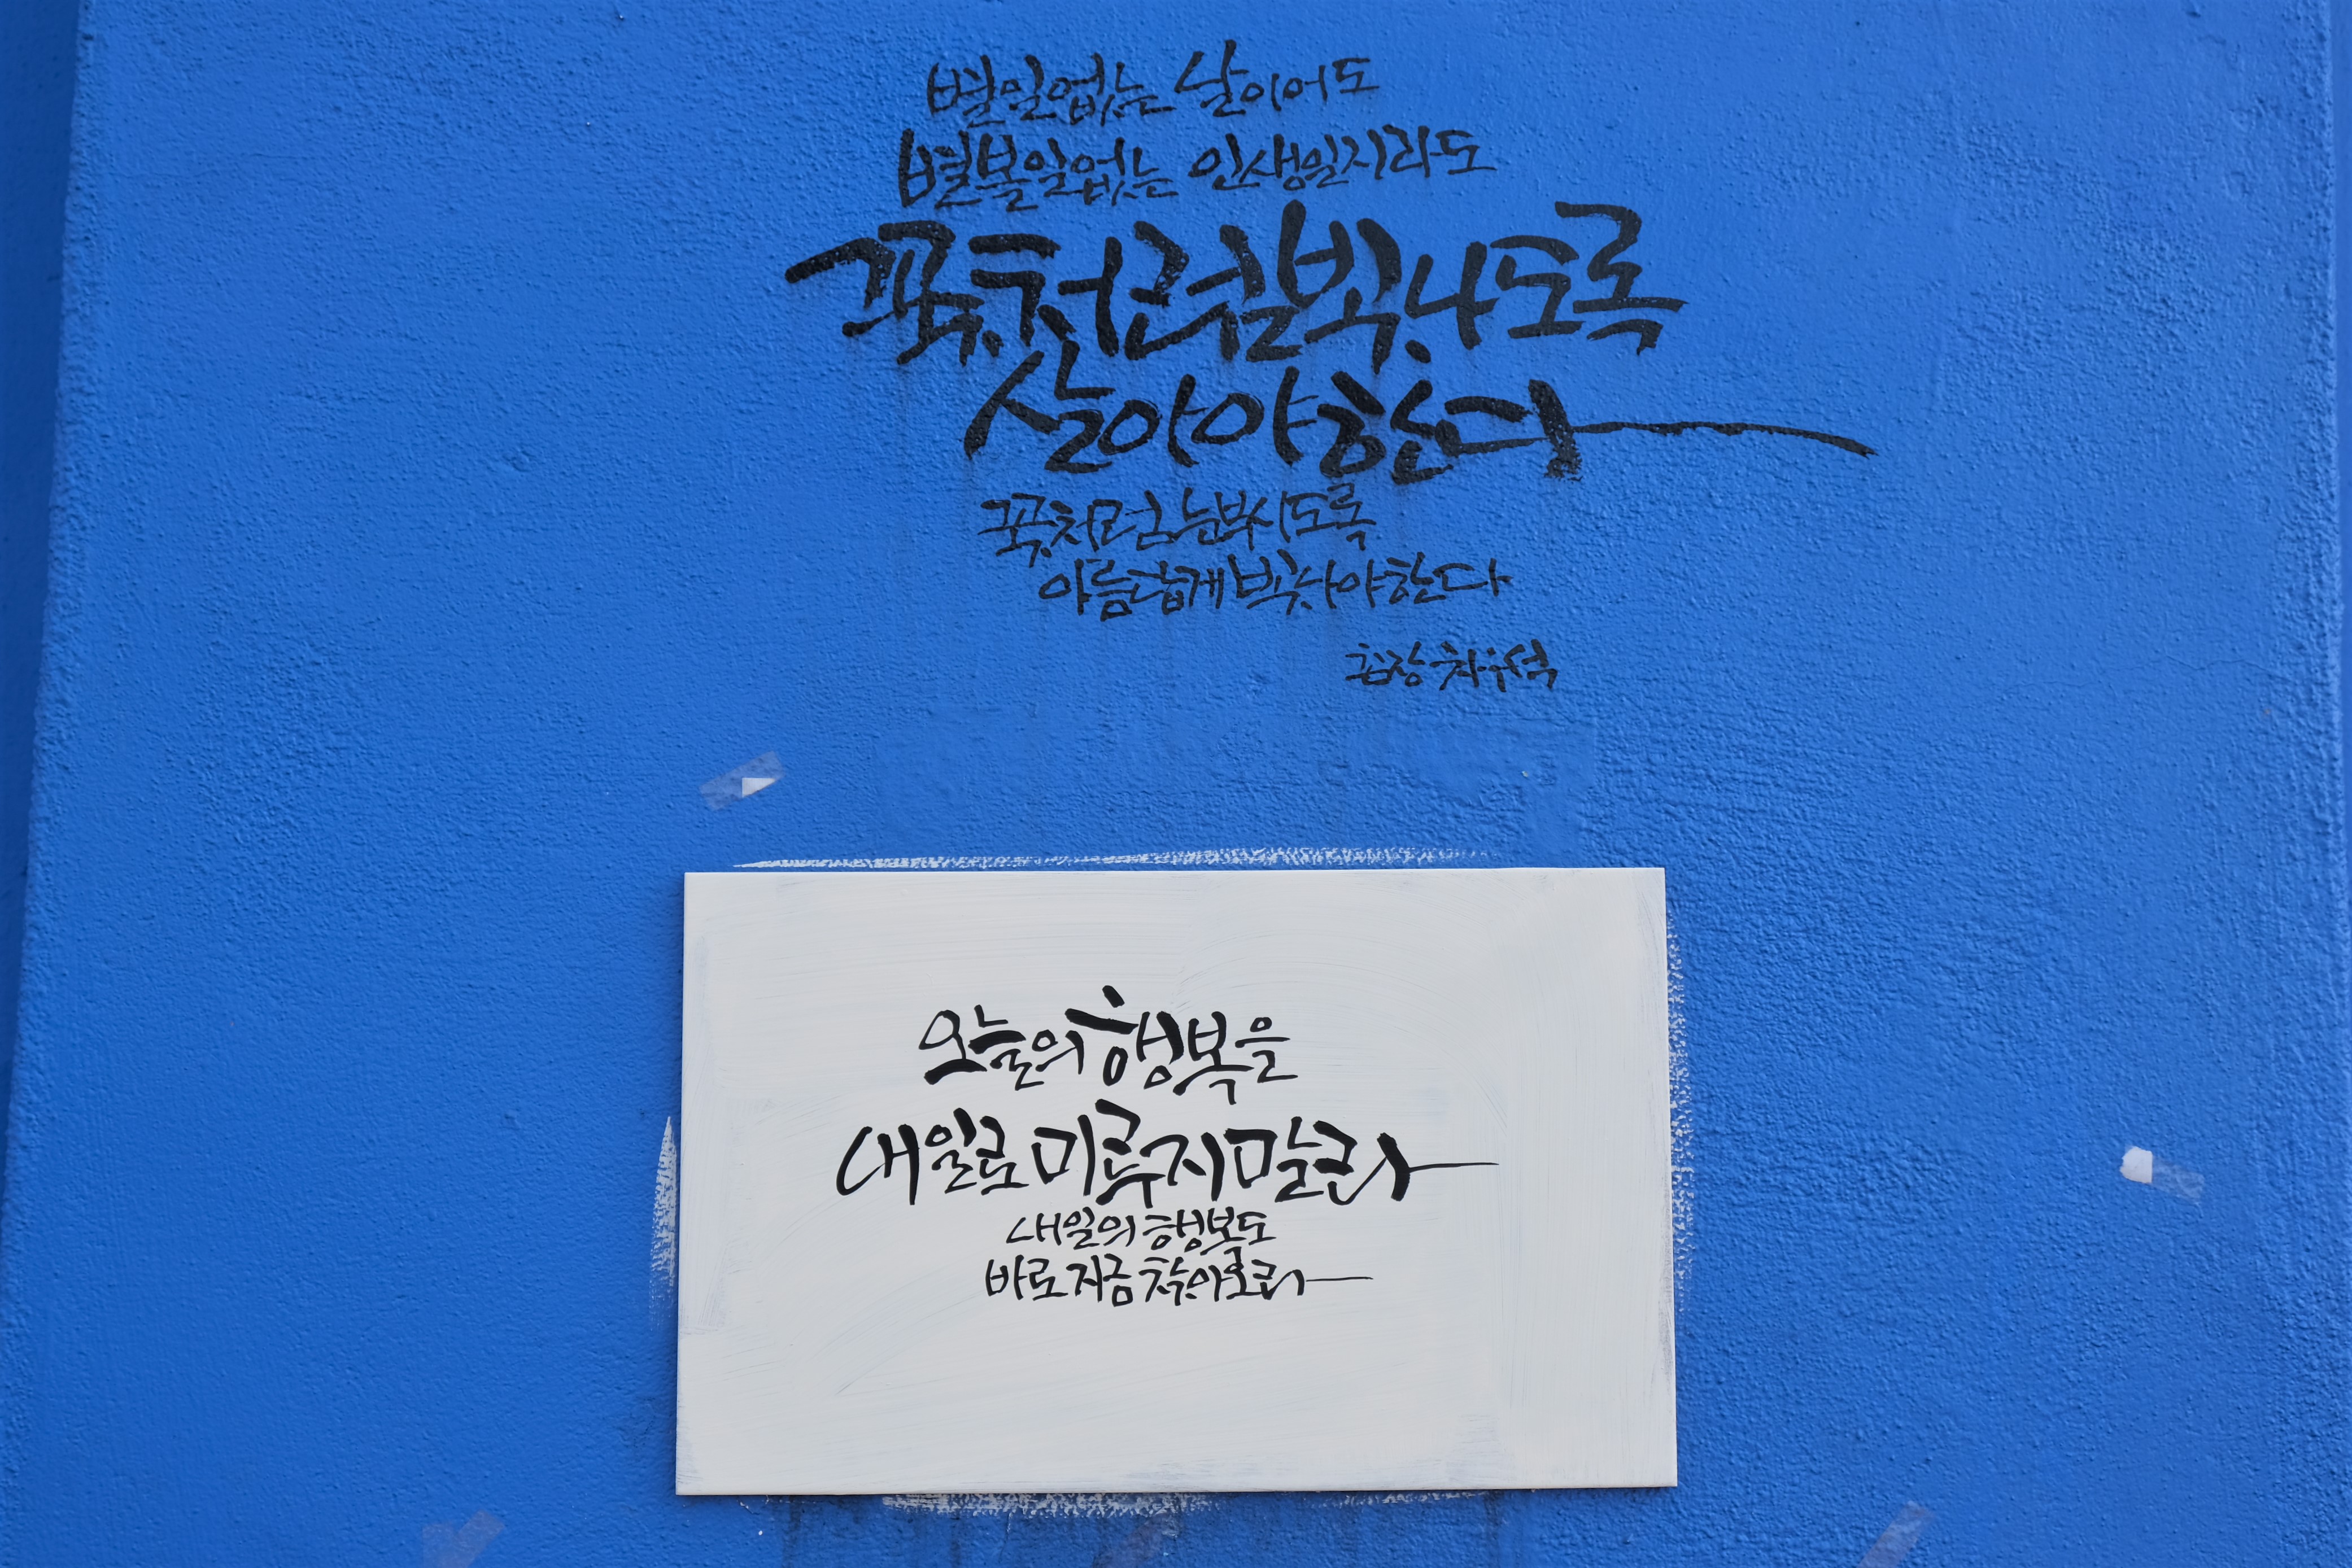 별일없는 날이어도
별볼일없는 인생일지라도
꽃처럼 빛나도록
살아야 한다
꽃처럼 눈부시도록
아름답게 빛나야 한다
차우석
오늘의 행복을
내일로 미루지 말라
내일의 행복도
바로 지금 찾아오라